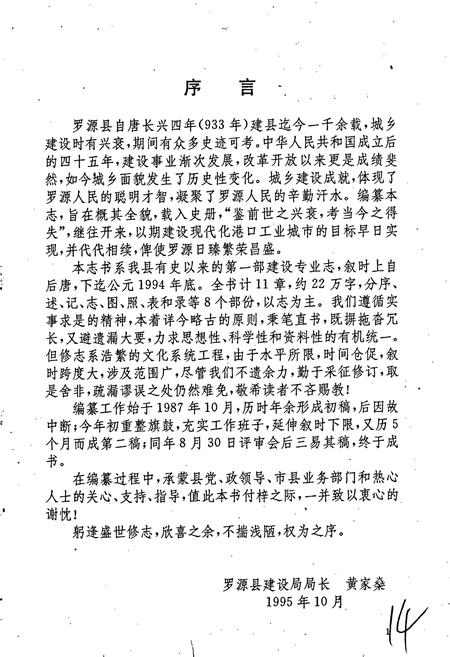 序言
罗源县自唐长兴四年(933年)建县迄今一千余载,城乡
建设时有兴衰,期间有众多史迹可考。中华人民共和国成立后
的四十五年,建设事业渐次发展,改革开放以来更是成绩斐
然,如今城乡面貌发生了历史性变化。城乡建设成就,体现了
罗源人民的聪明才智,凝聚了罗源人民的辛勤汗水。编纂本
志,旨在概其全貌,载入史册,“鉴前世之兴衰,考当今之得
失”,继往开来,以期建设现代化港口工业城市的目标早日实
现,并代代相续,俾使罗源日臻繁荣昌盛。
本志书系我县有史以来的第一部建设专业志,叙时上自
后唐,下迄公元1994年底。全书计11章,约22万字,分序、
述、记、志、图、照、表和录等8个部份,以志为主。我们遵循实
事求是的精神,本着详今略古的原则,秉笔直书,既摒拖沓冗
长,又避遗漏大要,力求思想性、科学性和资料性的有机统一。
但修志系浩繁的文化系统工程,由于水平所限,时间仓促,叙
时跨度大,涉及范围广,尽管我们不遗余力,勤于采征修订,取
是舍非,疏漏谬误之处仍然难免,敬希读者不吝赐教!
编纂工作始于1987年10月,历时年余形成初稿,后因故
中断;今年初重整旗鼓,充实工作班子,延伸叙时下限,又历5
个月而成第二稿;同年8月30日评审会后三易其稿,终于成
书。
在编纂过程中,承蒙县党、政领导、市县业务部门和热心
人士的关心、支持、指导,值此本书付梓之际,一并致以衷心的
谢忱!
躬逢盛世修志,欣喜之余,不揣浅陋,权为之序。
罗源县建设局局长 黄家燊
1995年10月
14